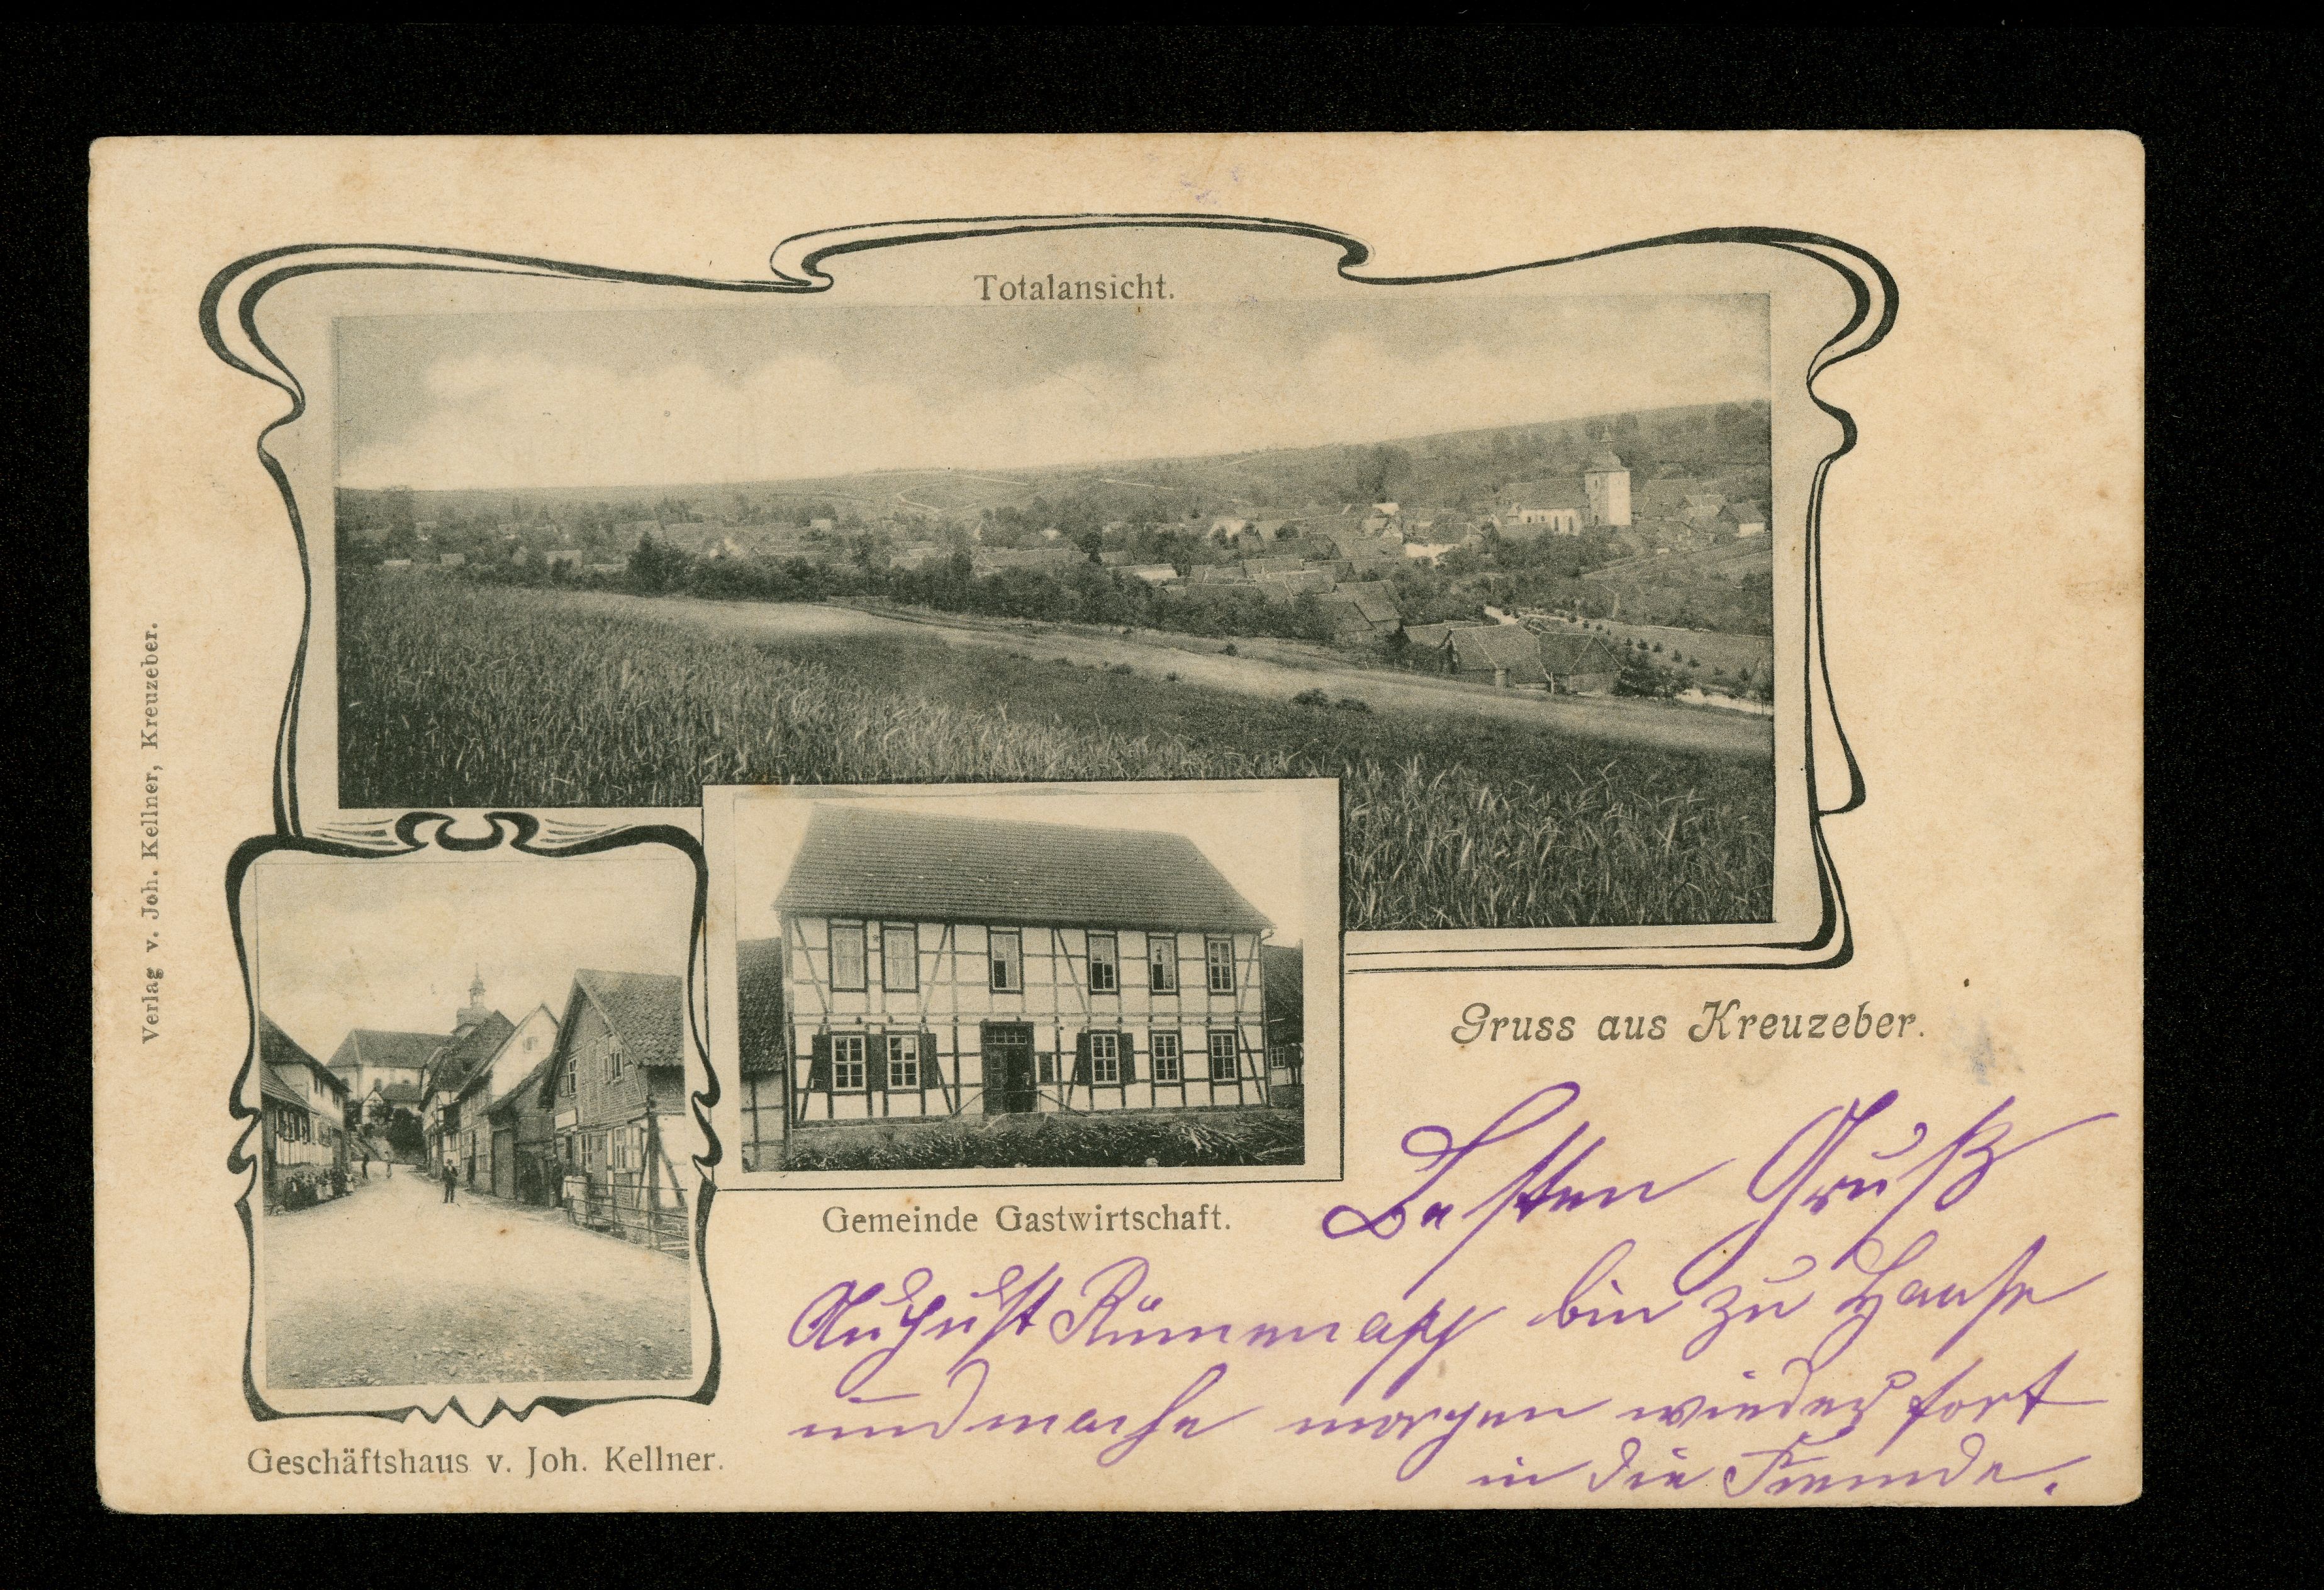 Totalansicht.
Verlag v. Joh. Kellner, Kreuzeber.
Gruss aus Kreuzeber.
Gemeinde Gastwirtschaft.
Geschäftshaus v. Joh. Kellner.
Besten Gruß
August Rümenapp bin zu Hause
und mache morgen wieder fort
in die Fremde.